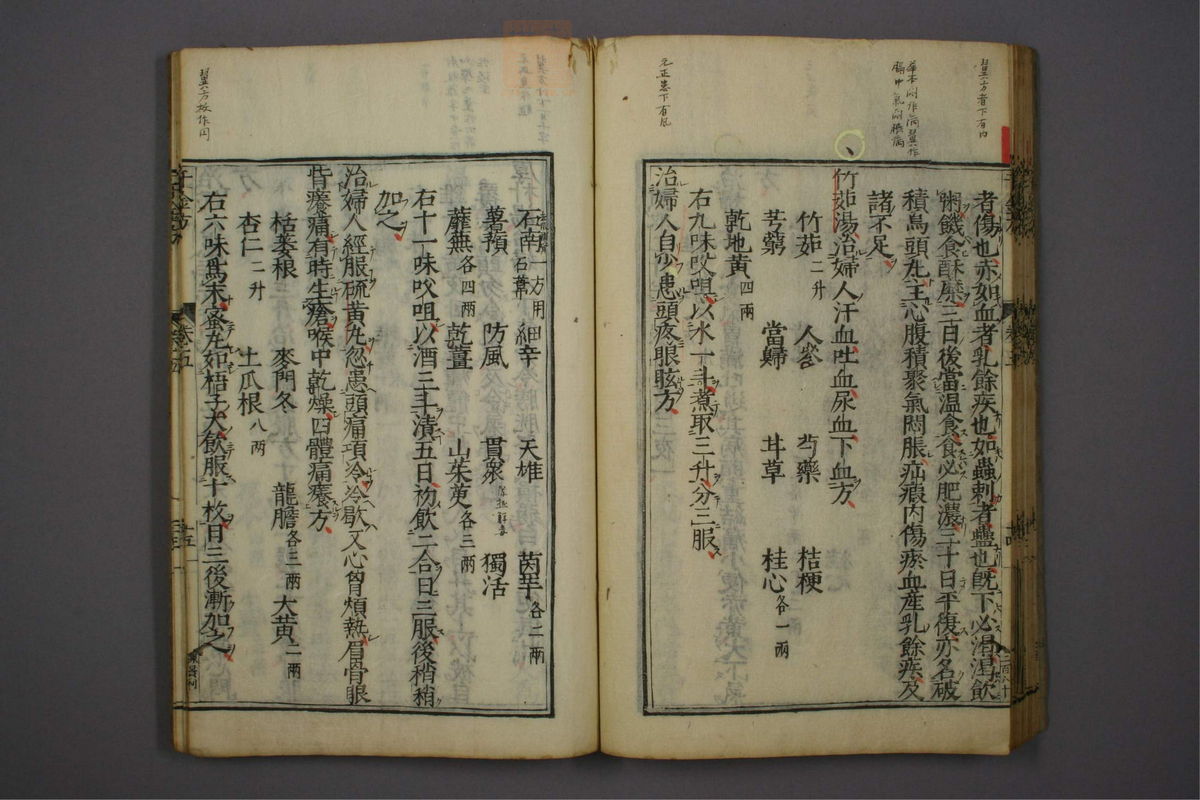 翼方者下有内
者傷也赤如血者乳餘疾也如蟲剌者蠱也既下必渴渴飲
粥飢食酥糜三日後當温食食必肥濃三十日平復亦名破
積烏頭丸主心腹積聚氣悶脹疝瘕内傷瘀血産乳餘疾及
諸不足
竹茹湯治婦人汗血吐血尿血下血方
竹茹二升 人參 芍藥 桔梗
芎藭 當歸 甘草 桂心各一兩
乾地黄四兩
右九味㕮咀以水一斗煮取三升分三服
治婦人自少患頭疼眼眩方
石南一方用石葦 細辛 天雄 茵芋各二兩
薯蕷 防風 貫衆 獨活
蘼蕪各四兩 乾薑 山茱萸各三兩
右十一味㕮咀以酒三斗漬五日初飲二合日三服後稍稍
加之
治婦人經服硫黄丸忽患頭痛項冷冷歇又心胷煩熱眉骨眼
眥癢痛有時生瘡喉中乾燥四體痛癢方
栝蔞根 麥門冬 龍膽各三兩 大黄二兩
杏仁二升 土瓜根八兩
右六味爲末蜜丸如梧子大飲服十枚日三後漸加之
翼方故作用
千金方
卷五